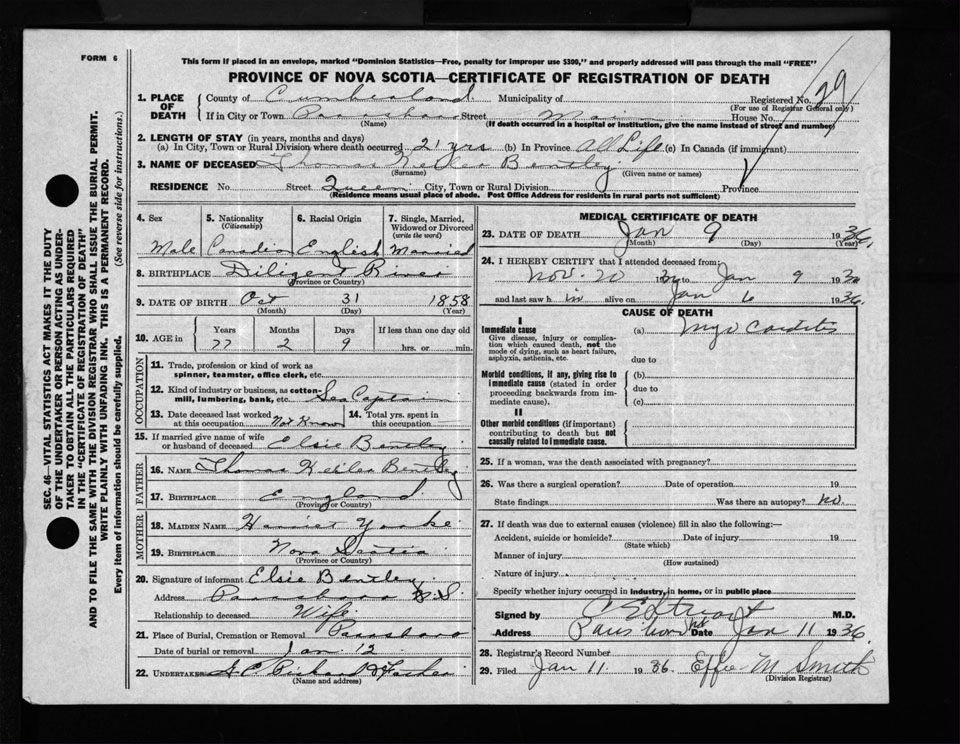 FORM 6
This form if placed in an envelope, marked "Dominion Statistics—Free, penalty for improper use $300," and properly addressed will pass through the mail "FREE"
PROVINCE OF NOVA SCOTIA—CERTIFICATE OF REGISTRATION OF DEATH
SEC. 46—VITAL STATISTICS ACT MAKES IT THE DUTY
OF THE UNDERTAKER OR PERSON ACTING AS UNDER-
TAKER TO OBTAIN ALL THE PARTICULARS REQUIRED
IN THE "CERTIFICATE OF REGISTRATION OF DEATH"
AND TO FILE THE SAME WITH THE DIVISION REGISTRAR WHO SHALL ISSUE THE BURIAL PERMIT.
WRITE PLAINLY WITH UNFADING INK. THIS IS A PERMANENT RECORD.
Every item of information should be carefully supplied. (See reverse side for instructions.)
1. PLACE OF DEATH
County of Cumberland Municipality of Registered No. 29
(For use of Registrar General only)
If in City or Town Parrsboro Street Main House No.
(Name) (If death occurred in a hospital or institution, give the name instead of street and number)
2. LENGTH OF STAY (in years, months and days)
(a) In City, Town or Rural Division where death occurred 21 yrs (b) In Province All Life (c) In Canada (if immigrant)
3. NAME OF DECEASED Thomas Bentley
(Surname) (Given name or names)
RESIDENCE No Street Queen City, Town or Rural Division Province
(Residence means usual place of abode. Post Office Address for residents in rural parts not sufficient)
4. Sex 5. Nationality (Citizenship) 6. Racial Origin 7. Single, Married, Widowed or Divorced (write the word)
Male Canadian English Married
8. BIRTHPLACE Diligent River
(Province or Country)
9. DATE OF BIRTH Oct 31 1858
(Month) (Day) (Year)
10. AGE in Years Months Days If less than one day old
77 2 9 hrs. or min.
OCCUPATION
11. Trade, profession or kind of work as spinner, teamster, office clerk, etc.
12. Kind of industry or business, as cotton-mill, lumbering, bank, etc. Sea Captain
13. Date deceased last worked at this occupation Not Known 14. Total yrs. spent in this occupation
15. If married give name of wife or husband of deceased Elsie Bentley
FATHER
16. NAME Thomas Bentley
17. BIRTHPLACE England
(Province or Country)
MOTHER
18. MAIDEN NAME Harriet Yorke
19. BIRTHPLACE Nova Scotia
(Province or Country)
20. Signature of informant Elsie Bentley
Address Parrsboro N.S.
Relationship to deceased Wife
21. Place of Burial, Cremation or Removal Parrsboro
Date of burial or removal Jan. 12
22. UNDERTAKER
(Name and address)
MEDICAL CERTIFICATE OF DEATH
23. DATE OF DEATH Jan 9 1936
(Month) (Day) (Year)
24. I HEREBY CERTIFY that I attended deceased from:
Nov. 20 193 Jan 9 193
and last saw h im alive on Jan 6 1936.
CAUSE OF DEATH
I
Immediate cause (a) Myo Carditis
Give disease, injury or complication which caused death, not the mode of dying, such as heart failure, asphyxia, asthenia, etc.
due to
Morbid conditions, if any, giving rise to immediate cause (stated in order proceeding backwards from immediate cause).
(b)
due to
(c)
II
Other morbid conditions (if important) contributing to death but not causally related to immediate cause.
25. If a woman, was the death associated with pregnancy?
26. Was there a surgical operation? Date of operation 19
State findings Was there an autopsy? No.
27. If death was due to external causes (violence) fill in also the following:—
Accident, suicide or homicide? Date of injury 19
(State which)
Manner of injury
(How sustained)
Nature of injury
Specify whether injury occurred in industry, in home, or in public place
Signed by M.D.
Address Parrsboro NS Date Jan 11 1936.
28. Registrar's Record Number
29. Filed Jan 11. 1936. Effie M Smith
(Division Registrar)